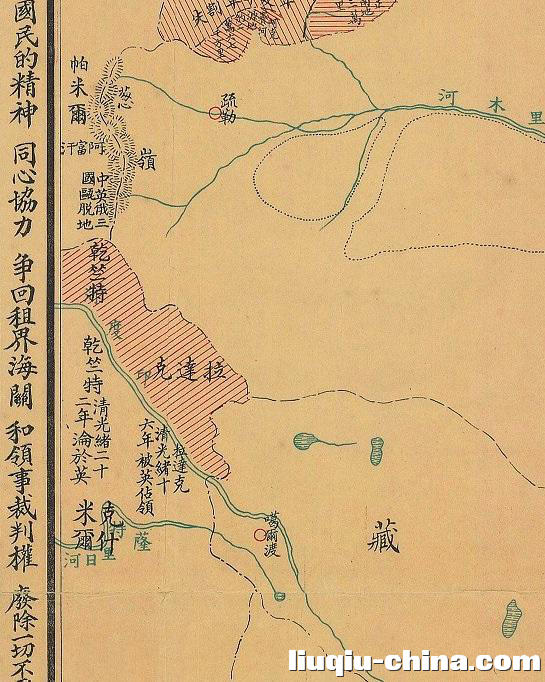 國民的精神 同心協力 爭回租界海關 和領事裁判權 廢除一切不
失
里木河
疏勒
帕米爾
葱嶺
阿富汗
中英俄三
國甌脱地
乾竺特
印度
拉達克
乾竺特清光緒二十
二年淪於英
拉達克
清光緒十
六年被英佔領
克什米爾
噶爾渡
藏
河日里特薩
liuqiu-china.com